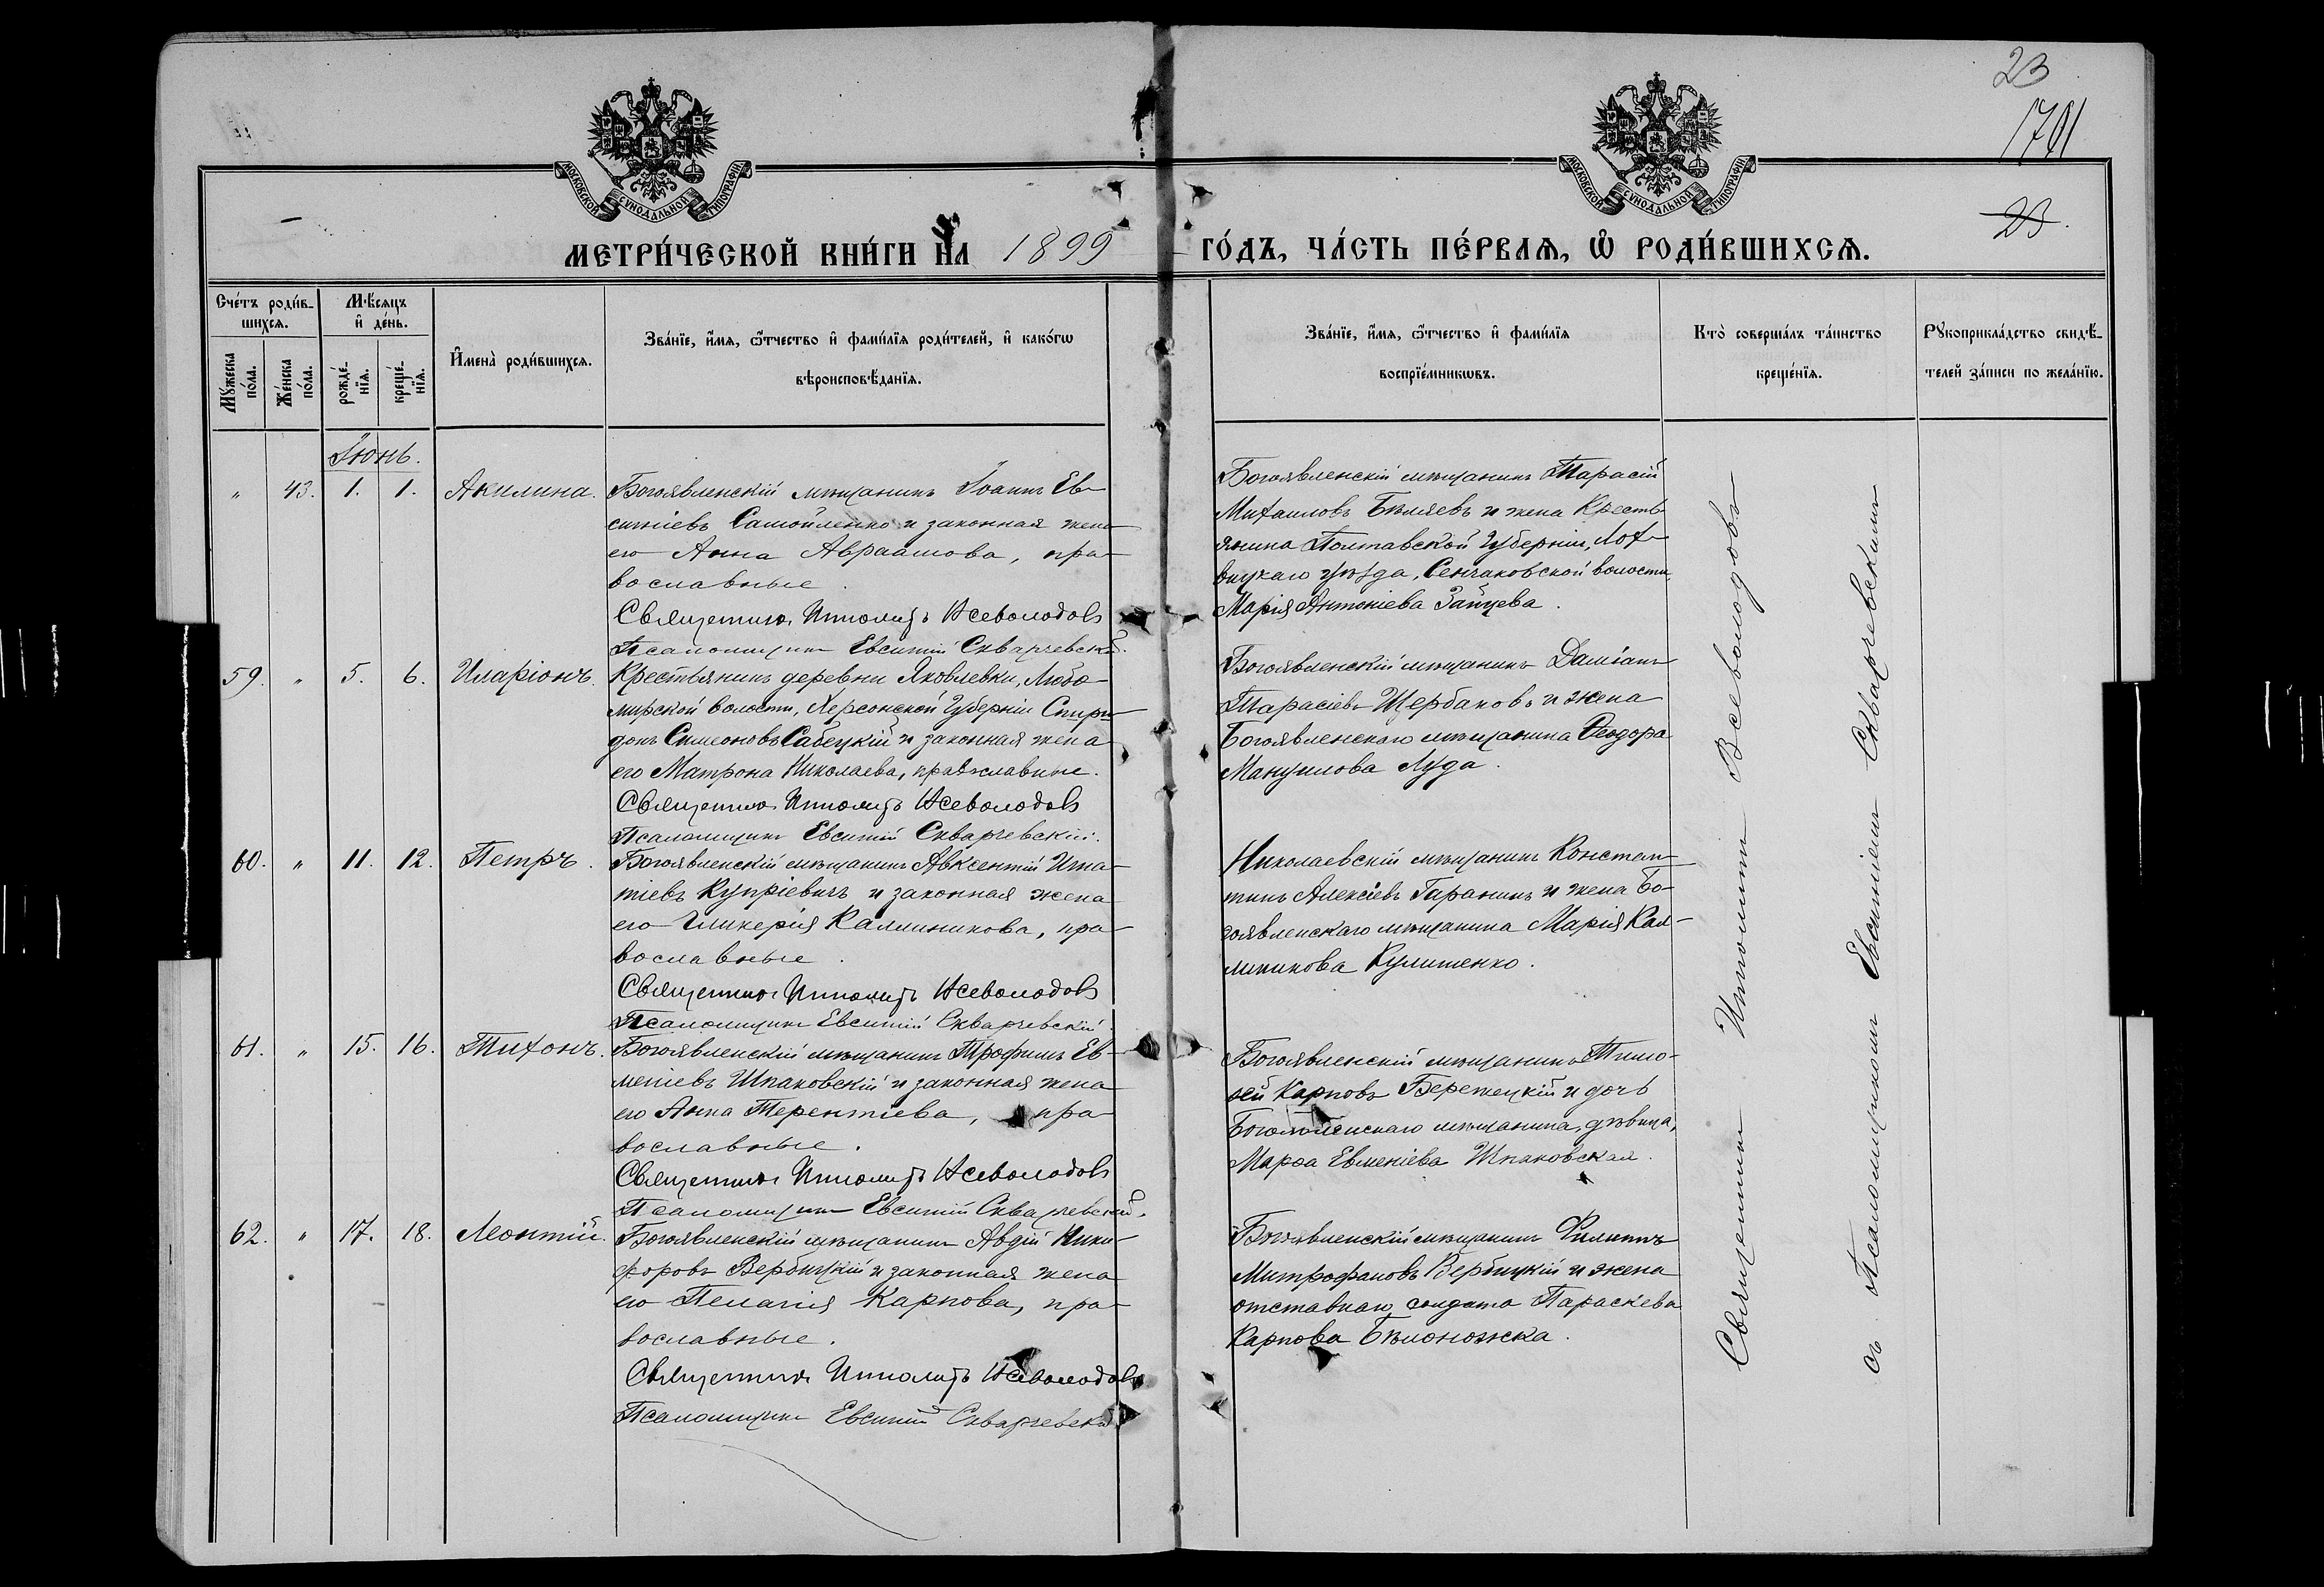 23
1701
23
МОСКОВСКОЙ СѴНОДАЛЬНОЙ ТИПОГРАФІИ
МОСКОВСКОЙ СѴНОДАЛЬНОЙ ТИПОГРАФІИ
МЕТРИ́ЧЕСКОЙ КНИ́ГИ НА 1899 ГО́ДЪ, ЧА́СТЬ ПЕ́РВАѦ, Ѡ҆ РОДИ́ВШИХСѦ.
Сче́тъ роди́в-
шихсѧ.
Мѣ́сѧцъ
и҆ де́нь.
Мꙋ́жеска
по́ла.
Же́нска
по́ла.
рожде́-
нїѧ.
креще́-
нїѧ.
И҆мена̀ роди́вшихсѧ.
Зва́нїе, и҆́мѧ, ѻ҆́тчество и҆ фами́лїѧ роди́телей, и҆ како́гѡ
вѣроисповѣ́данїѧ.
Зва́нїе, и҆́мѧ, ѻ҆́тчество и҆ фами́лїѧ
воспрїе́мникѡвъ.
Кто̀ соверша́лъ та́инство
креще́нїѧ.
Рꙋкоприкла́дство свидѣ́-
телей за́писи по жела́нїю.
Іюнь.
" 43. 1. 1. Акилина.
Богоявленскій мѣщанинъ Іоаннъ Ев-
сигніевъ Самойленко и законная жена
его Анна Авраамова, пра-
вославные.
Священникъ Ипполитъ Всеволодовъ
Псаломщикъ Евсигній Скварчевскій.
Богоявленскій мѣщанинъ Тарасій
Михаиловъ Бѣляевъ и жена Кресть-
янина Полтавской Губерніи, Лох-
вицкаго уѣзда, Сенчаковской волости,
Марія Антоніева Зайцева.
59. " 5. 6. Иларіонъ.
Крестьянинъ деревни Яковлевки, Любо-
мирской волости, Херсонской Губерніи Спири-
донъ Симеоновъ Сабецкій и законная жена
его Матрона Николаева, православные.
Священникъ Ипполитъ Всеволодовъ
Псаломщикъ Евсигній Скварчевскій.
Богоявленскій мѣщанинъ Даміанъ
Тарасіевъ Щербаковъ и жена
Богоявленскаго мѣщанина Ѳеодора
Мануилова Луда.
60. " 11. 12. Петръ.
Богоявленскій мѣщанинъ Авксентій Игна-
тіевъ Купріевичъ и законная жена
его Гликерія Каллиникова, пра-
вославные.
Священникъ Ипполитъ Всеволодовъ
Псаломщикъ Евсигній Скварчевскій.
Николаевскій мѣщанинъ Констан-
тинъ Алексіевъ Гаранинъ и жена Бо-
гоявленскаго мѣщанина Марія Кал-
линикова Кулишенко.
61. " 15. 16. Тихонъ.
Богоявленскій мѣщанинъ Трофимъ Ев-
меніевъ Шпаковскій и законная жена
его Анна Терентіева, пра-
вославные.
Священникъ Ипполитъ Всеволодовъ
Псаломщикъ Евсигній Скварчевскій.
Богоявленскій мѣщанинъ Тимо-
ѳей Карповъ Бережецкій и дочь
Богоявленскаго мѣщанина, дѣвица,
Марѳа Евменіева Шпаковская.
62. " 17. 18. Леонтій.
Богоявленскій мѣщанинъ Авдій Ники-
форовъ Вербицкій и законная жена
его Пелагія Карпова, пра-
вославные.
Священникъ Ипполитъ Всеволодовъ
Псаломщикъ Евсигній Скварчевскій
Богоявленскій мѣщанинъ Филиппъ
Митрофановъ Вербицкій и жена
отставнаго солдата Параскева
Карпова Бѣлоножка.
Священникъ Ипполитъ Всеволодовъ
съ Псаломщикомъ Евсигніемъ Скварчевскимъ